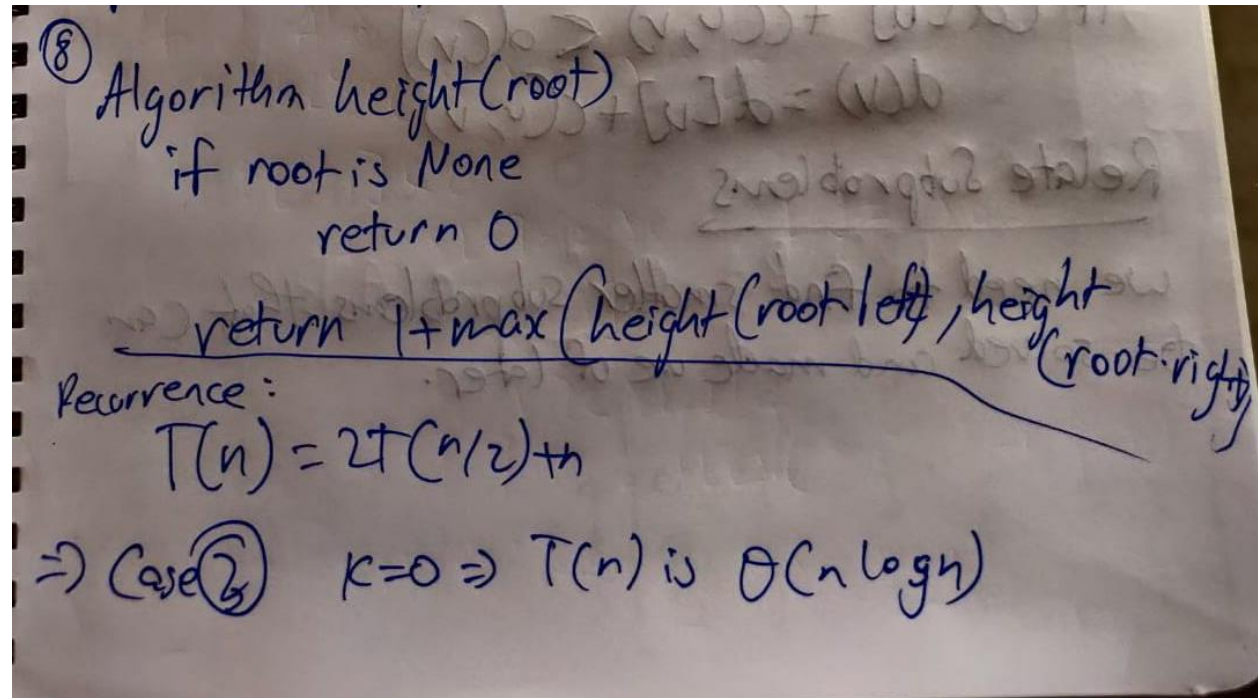 ⑧
Algorithm height(root)
if root is None
return 0
return 1+max(height(root.left), height
(root.right)
Recurrence:
T(n) = 2T(n/2)+n
=> Case ② K=0 => T(n) is θ(n logn)
Relate Subproblems